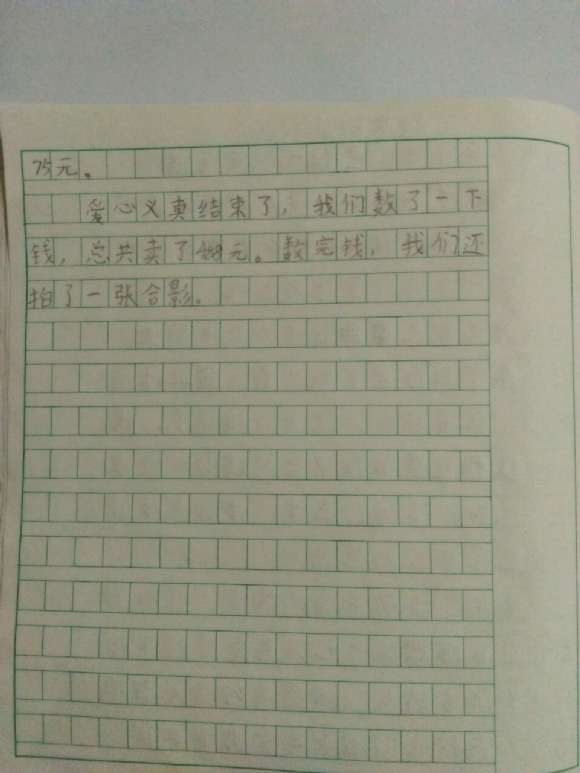 75元。
爱心义卖结束了，我们数了一下
钱，总共卖了488元。数完钱，我们还
拍了一张合影。